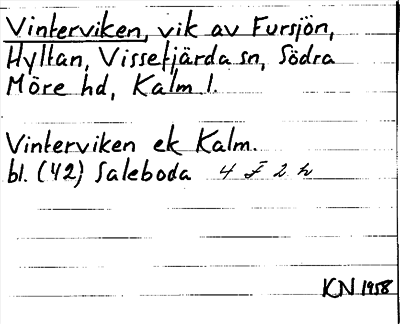 Vinterviken, vik av Fursjön,
Hyltan, Vissefjärda sn, Södra
Möre hd, Kalm l.
Vinterviken ek Kalm.
bl. (42) Saleboda 4 F 2 h
KN 1958